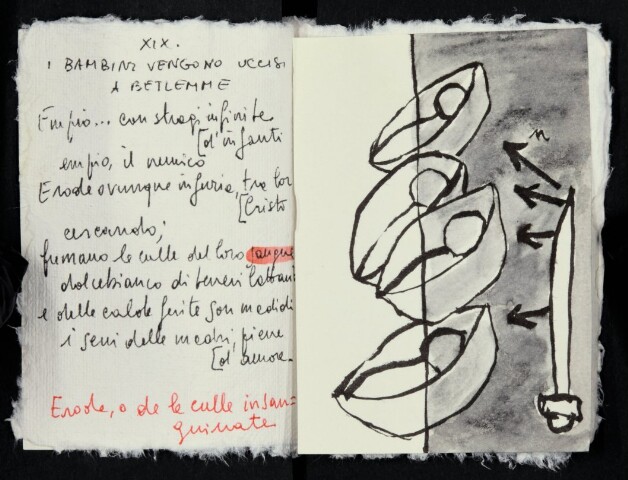 XIX.
I BAMBINI VENGONO UCCISI
A BETLEMME
Empio... con stragi infinite
[d'infanti
empio, il nemico
Erode ovunque infuria, tra lor
[Cristo
cercando;
fumano le culle del loro sangue
dolcebianco di teneri lattanti
e delle calde ferite son madidi
i seni delle madri, piene
[d'amore.
Erode, o de le culle insan-
guinate